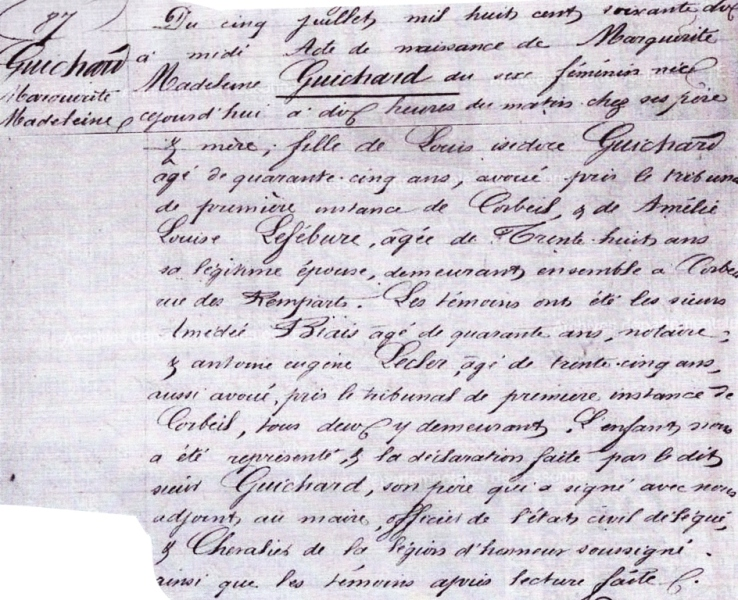 87
Guichard
Marguerite
Madeleine
Du cinq juillet mil huit cent soixante dix
à midi Acte de naissance de Marguerite
Madeleine Guichard du sexe féminin née
cejourd'hui à dix heures du matin chez ses père
& mère, fille de Louis isidore Guichard
âgé de quarante-cinq ans, avoué près le tribunal
de première instance de Corbeil, & de Amélie
Louise Lefébure, âgée de Trente-huit ans
sa légitime épouse, demeurant ensemble à Corbeil
rue des Remparts. Les témoins ont été les sieurs
Amédée Biais âgé de quarante ans, notaire,
& antoine eugène Lecler, âgé de trente-cinq ans,
aussi avoué, près le tribunal de première instance de
Corbeil, tous deux y demeurant. L'enfant nous
a été représenté, & la déclaration faite par le dit
sieur Guichard, son père qui a signé avec nous
adjoint au maire, officier de l'état civil délégué,
& Chevalier de la légion d'honneur soussigné.
ainsi que les témoins après lecture faite.